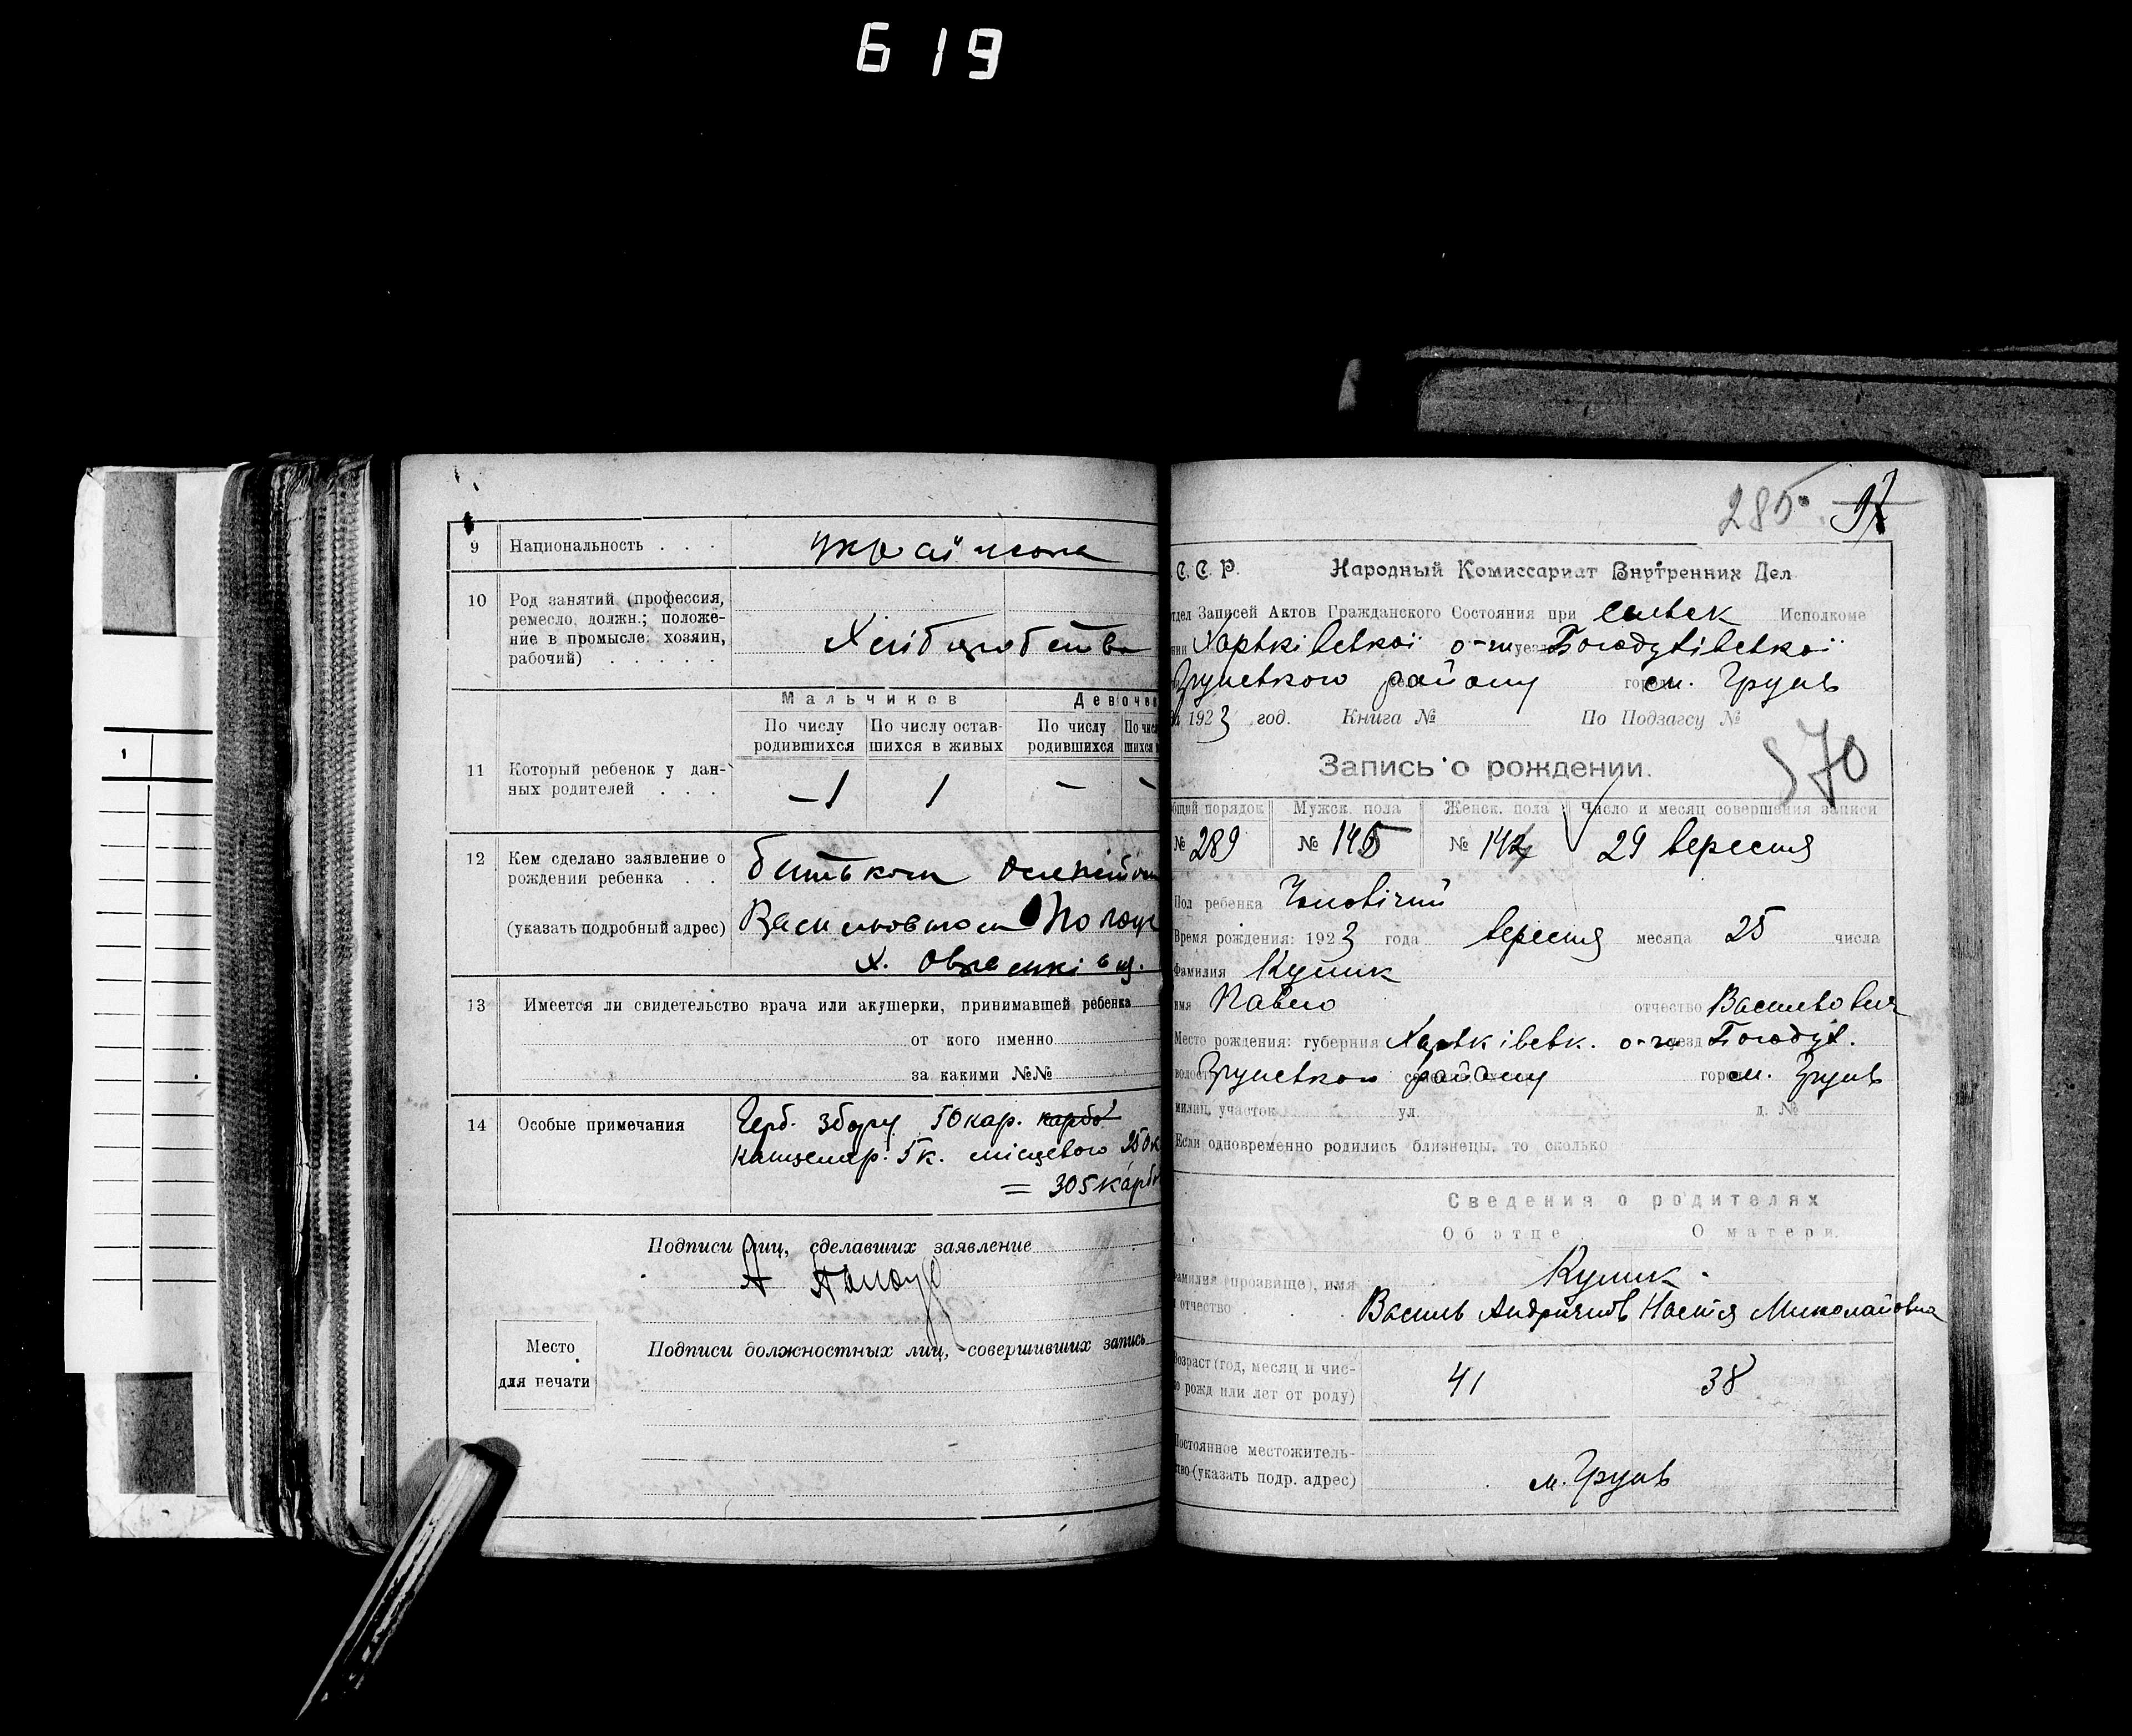 619
9 Национальность . . . Українська
10 Род занятий (профессия,
ремесло, должн.; положе-
ние в промысле: хозяин,
рабочий) . . . . . Хлібороб
Мальчиков Девочек
По числу По числу остав- По числу По чис
родившихся шихся в живых родившихся шихся в
11 Который ребенок у дан-
ных родителей . . . – 1 1 – –
12 Кем сделано заявление о
рождении ребенка . . батьком
(указать подробный адрес)
х.
13 Имеется ли свидетельство врача или акушерки, принимавшей ребенка
от кого именно
за какими №№
14 Особые примечания Герб. збору 50 кар. карбо
Канцеляр. 5 к. місцевого 250 к
= 305 карб
Подписи лиц, сделавших заявление
Место
для печати
Подписи должностных лиц, совершивших запись
285 97
С. С. Р. Народный Комиссариат Внутренних Дел
тдел Записей Актов Гражданского Состояния при Исполкоме
Харьківськоі о-ни уез Богодухівськоі
Грунського району гор см. Грунь
1923 год. Книга № По Подзагсу №
570
Запись о рождении.
бщий порядок Мужск. пола Женск. пола Число и месяц совершения записи
№ 289 № 145 № 142 29 вересня
Пол ребенка Чоловічий
Время рождения: 1923 года вересня месяца 25 числа
Фамилия Кулик
имя Павло отчество Васильович
Место рождения: губерния Харьківськ. о-ни уезд Богодух.
волост Грунського району гор см. Грунь
милиц. участок ул. д. №
Если одновременно родились близнецы, то сколько
Сведения о родителях
Об отце О матери.
амилия (прозвище), имя Кулик
и отчество . . . Василь Андріянов Настя Миколаівна
Возраст (год, месяц и чис-
ло рожд или лет от роду) 41 38
Постоянное местожитель-
тво (указать подр. адрес) м. Грунь